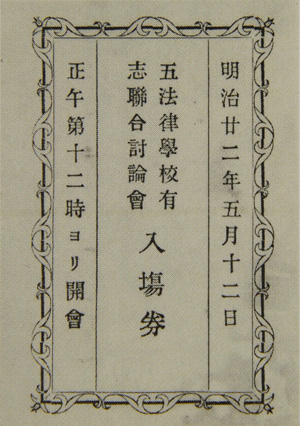 明治廿二年五月十二日
五法律學校有
志聯合討論會
入場券
正午第十二時ヨリ開會